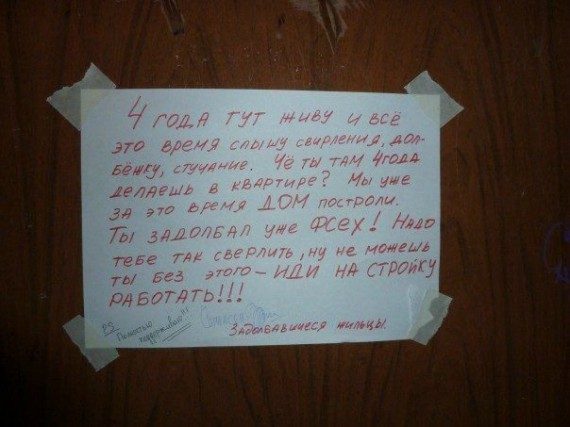 4 года тут живу и всё
это время слышу свирления, дол-
бёжку, стучание. Чё ты там 4 года
делаешь в квартире? Мы уже
за это время ДОМ построли.
Ты задолбал уже ФСЕХ! Надо
тебе так сверлить, ну не можешь
ты без этого – ИДИ НА СТРОЙКУ
РАБОТАТЬ!!!
PS
Полностью
поддерживаю!!!
Задолбавшиеся жильцы.